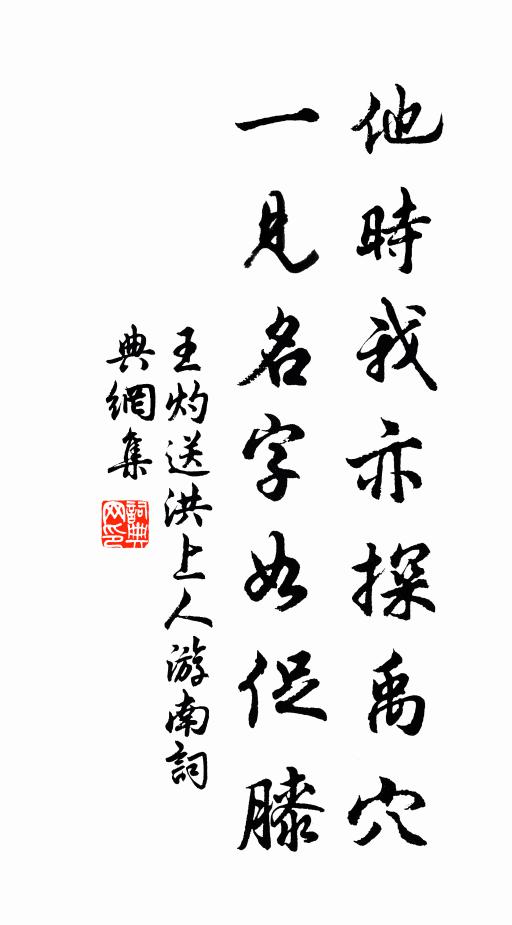 他時我亦探禹穴
一見名字如促膝
王灼送洪上人游南詞
典網集
詞典
网印